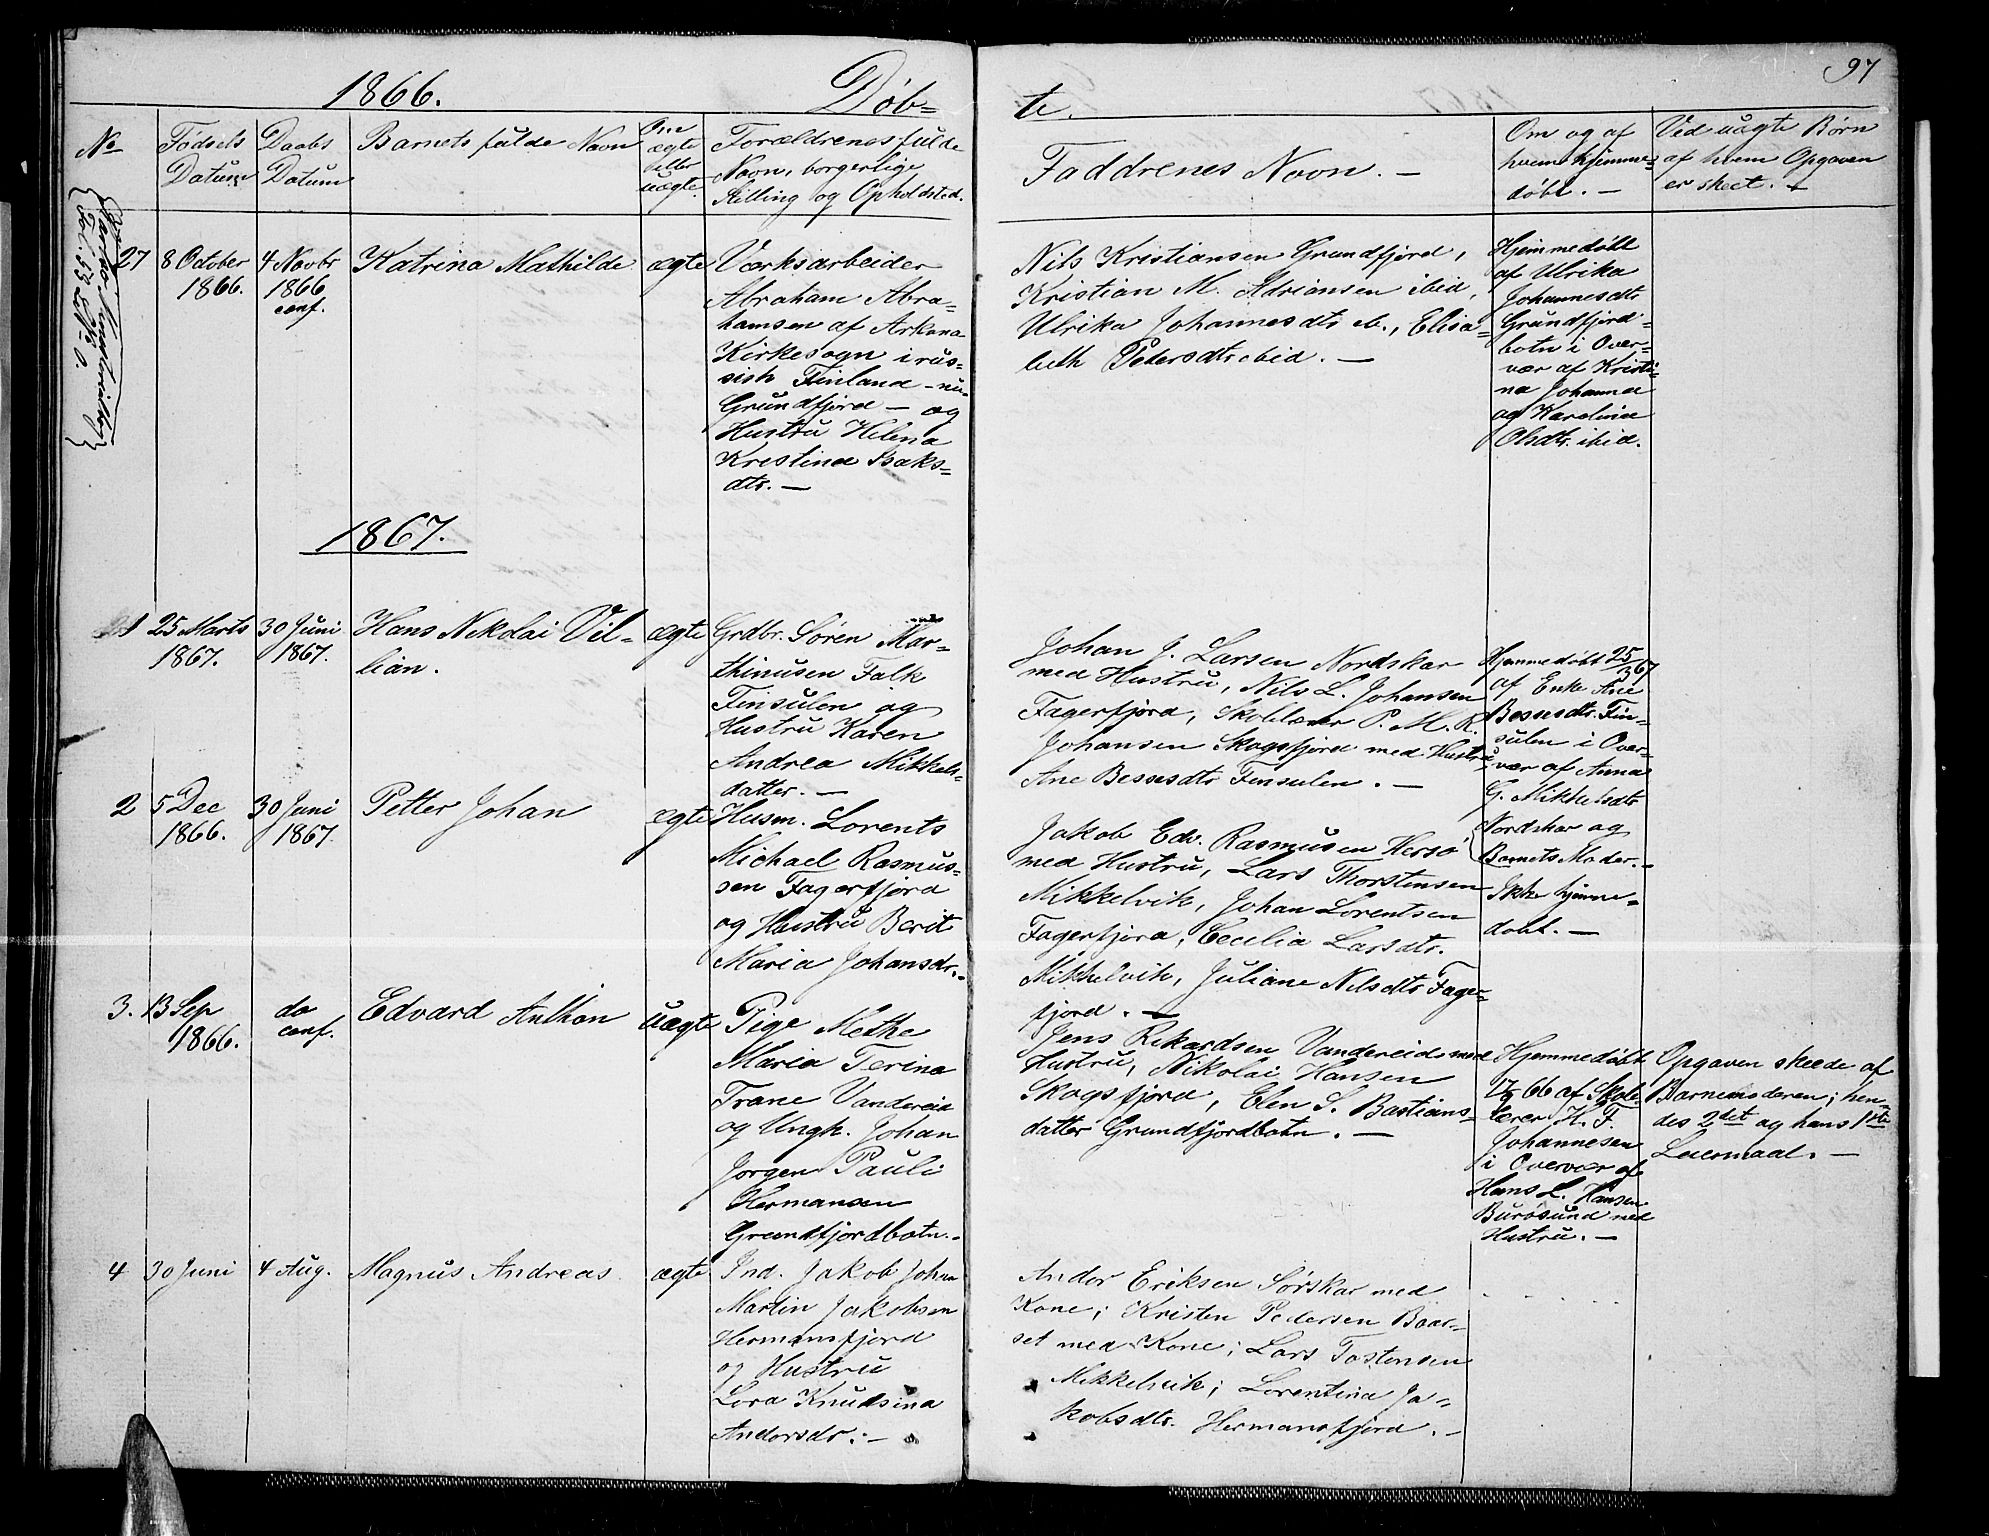 97
1866. Døb=
te.
No
Fødsels
Datum
Daabs
Datum
Barnets fulde Navn
Om
ægte
eller
uægte.
Forældrenes fulde
Navn, borgerlige
Stilling og Opholdsted.
Faddrenes Navn. —
Om og af
hvem hjemme=
døbt. —
Ved uægte Børn
af hvem Opgaven
er skeet. —
27
8 October
1866.
4 Novbr
1866
conf.
Katrina Mathilde
ægte
Værksarbeider
Abraham Abra=
hamsen af Arkana
Kirkesogn i rus=
sisk Finland – nu
Grundfjord — og
Hustru Helena
Krestina Baks=
dtr. —
Nils Kristiansen Grundfjord,
Kristian M. Adriansen ibid,
Ulrika Johannesdtr ib., Elisa=
beth Petersdtr ibid. —
Hjemmedøbt
af Ulrika
Johannesdtr
Grundfjord=
botn i Over=
vær af Kristi=
na Johanna
og Karolina
Olsdtr. ibid.
1867.
1
25 Marts
1867.
30 Juni
1867.
Hans Nikolai Vil=
lian.
ægte
Grdbr. Søren Mar=
thinusen Falk
Finsulen og
Hustru Karen
Andrea Mikkels=
datter. —
Johan J. Larsen Nordskar
med Hustru, Nils L. Johansen
Fagerfjord, Skolelærer P. M. R.
Johansen Skogsfjord med Hustru,
Ane Bessesdtr Finsulen. —
Hjemmedøbt 25/3 67
af Enke Ane
Bessesdtr. Fin=
sulen i Over=
vær af Anna
G. Mikkelsdtr
Nordskar og
Barnets Moder. —
2
5 Dec
1866.
30 Juni
1867.
Petter Johan
ægte
Husm. Lorents
Michael Rasmus=
sen Fagerfjord
og Hustru Berit
Maria Johansdr. —
Jakob Edv. Rasmusen Hersø
med Hustru, Lars Thorstensen
Mikkelvik, Johan Lorentsen
Fagerfjord, Cecilia Larsdtr.
Mikkelvik, Juliane Nilsdtr Fager=
fjord. —
Ikke hjemme=
døbt. —
3.
13 Sep
1866.
do
conf.
Edvard Anthon
uægte
Pige Methe
Maria Terina
Trane Vandereid
og Ungk. Johan
Jørgen Pauli
Hermansen
Grundfjordbotn. —
Jens Rikardsen Vandereid med
Hustru, Nikolai Hansen
Skogsfjord, Elen S. Bastians=
datter Grundfjordbotn. —
Hjemmedøbt
17/9 66 af Skole=
lærer H. F.
Johannesen
i Overvær af
Hans L. Hansen
Burøsund med
Hustru. —
Opgaven skeede af
Barnemoderen; hen=
des 2det og hans 1ste
Leiermaal. —
4
30 Juni
4 Aug.
Magnus Andreas
ægte
Ind. Jakob Johan
Martin Jakobsen
Hermansfjord
og Hustru
Lova Knudsina
Andorsdr. —
Andor Eriksen Sørskar med
Kone; Kristen Pedersen Baar=
set med Kone; Lars Tostensen
Mikkelvik; Lorentina Ja=
kobsdtr. Hermansfjord. —